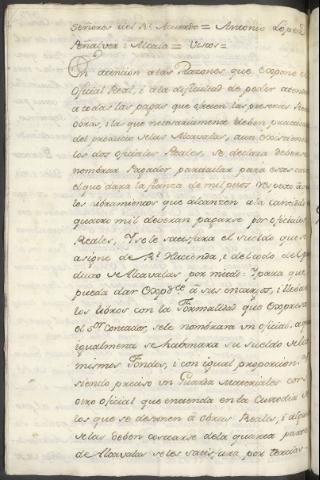 Señores del Rl. Acuerdo = Antonio Lopez
Peñalver i Alcala = Vistos =
En atencion a las Razones que expone el
Oficial Real, i a la dificultad de poder atender
a todas las pagas que ofrecen las presentes
obras, i las que necesariamente deben
del producto de las Alcavalas, aun
los dos oficiales Reales, se declara deberse
nombrar Pagador particular para estas
el que dara la fianza de mil pesos
los libramientos que alcanzen a la cantidad
quatro mil deveran pagarse por oficiales
Reales, y se le satisfara el sueldo que se
asigne de Rl. Hacienda, i del todo del pro
ducto de Alcavalas por mitad: i para que
pueda dar a sus encargos, i llebar
los libros con la Formalidad que expresa
el Sor. Contador, se le nombrara un oficial, a q
igualmente se habonara su sueldo de los
mismos Fondos, i con igual proporcion.
siendo preciso un Guarda Materiales con
otro oficial que entienda en la Custodia de
los que se destinen a obras Reales, i
se las deben costearse de la quarta parte
de Alcavalas se les satisfara por tercias